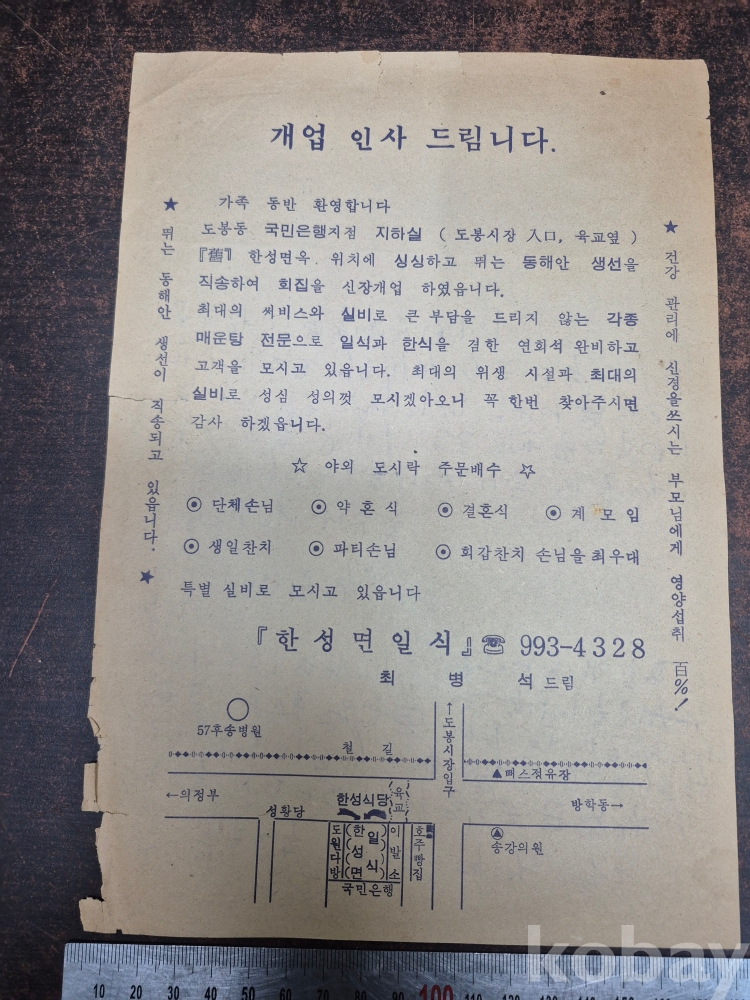 개업 인사 드림니다.
★ 뛰는 동해안 생선이 직송되고 있읍니다. ★
가족 동반 환영합니다
도봉동 국민은행지점 지하실 ( 도봉시장 入口, 육교옆 )
『舊』 한성면옥 위치에 싱싱하고 뛰는 동해안 생선을
직송하여 회집을 신장개업 하였읍니다.
최대의 써비스와 실비로 큰 부담을 드리지 않는 각종
매운탕 전문으로 일식과 한식을 겸한 연회석 완비하고
고객을 모시고 있읍니다. 최대의 위생 시설과 최대의
실비로 성심 성의껏 모시겠아오니 꼭 한번 찾아주시면
감사 하겠읍니다.
★ 건강 관리에 신경을쓰시는 부모님에게 영양섭취 百%!
☆ 야외 도시락 주문배수 ☆
◉ 단체손님 ◉ 약혼식 ◉ 결혼식 ◉ 계 모임
◉ 생일찬치 ◉ 파티손님 ◉ 회갑찬치 손님을 최우대
특별 실비로 모시고 있읍니다
『한성면일식』☎ 993-4328
최 병 석 드림
57후송병원
철 길
↑도봉시장입구
▲뻐스정유장
←의정부
성황당
한성식당
육교
방학동→
도원다방
(한성면)
(일식)
이발소
호주빵집
송강의원
국민은행
kobay
10 20 30 40 50 60 70 80 90 100 110